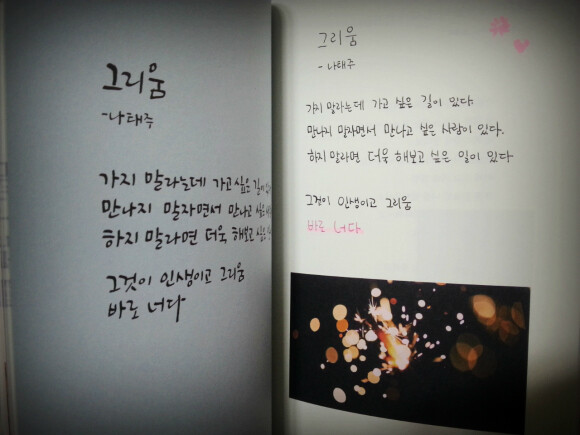 그리움
-나태주
가지 말라는데 가고 싶은 길이
만나지 말자면서 만나고 싶은
하지 말라면 더욱 해보고 싶은
그것이 인생이고 그리움
바로 너다
그리움
-나태주
가지 말라는데 가고 싶은 길이 있다.
만나지 말자면서 만나고 싶은 사람이 있다.
하지 말라면 더욱 해보고 싶은 일이 있다
그것이 인생이고 그리움
바로 너다.